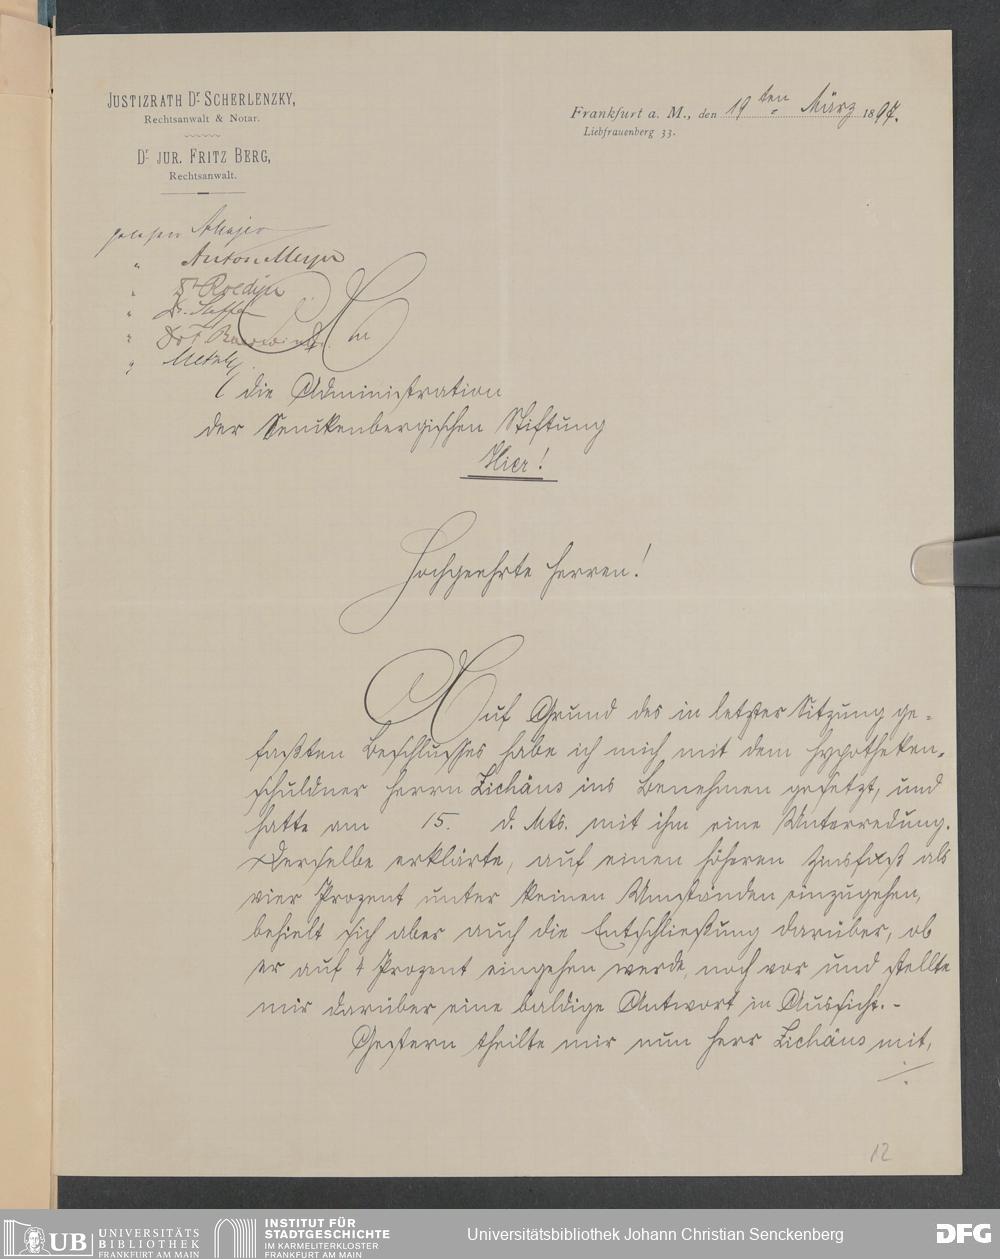 JUSTIZRATH Dr. SCHERLENZKY,
Rechtsanwalt & Notar.
Dr. JUR. FRITZ BERG,
Rechtsanwalt.
Frankfurt a. M., den 19ten März 1897.
Liebfrauenberg 33.
gelesen
" Anton Meyer
"
"
"
"
An
die Administration
der Senckenbergischen Stiftung
Hier!
Hochgeehrte Herren!
Auf Grund des in letzter Sitzung ge-
faßten Beschlusses habe ich mich mit dem Hypotheken-
schuldner Herrn Zichäus ins Benehmen gesetzt, und
hatte am 15. d. Mts. mit ihm eine Unterredung.
Derselbe erklärte, auf einen höheren Zinsfuß als
vier Prozent unter keinen Umständen einzugehen,
behielt sich aber auch die Entschließung darüber, ob
er auf 4 Prozent eingehen werde, noch vor und stellte
mir darüber eine baldige Antwort in Aussicht. -
Gestern theilte mir nun Herr Zichäus mit,
12
UB UNIVERSITÄTS
BIBLIOTHEK
FRANKFURT AM MAIN
INSTITUT FÜR
STADTGESCHICHTE
IM KARMELITERKLOSTER
FRANKFURT AM MAIN
Universitätsbibliothek Johann Christian Senckenberg
DFG